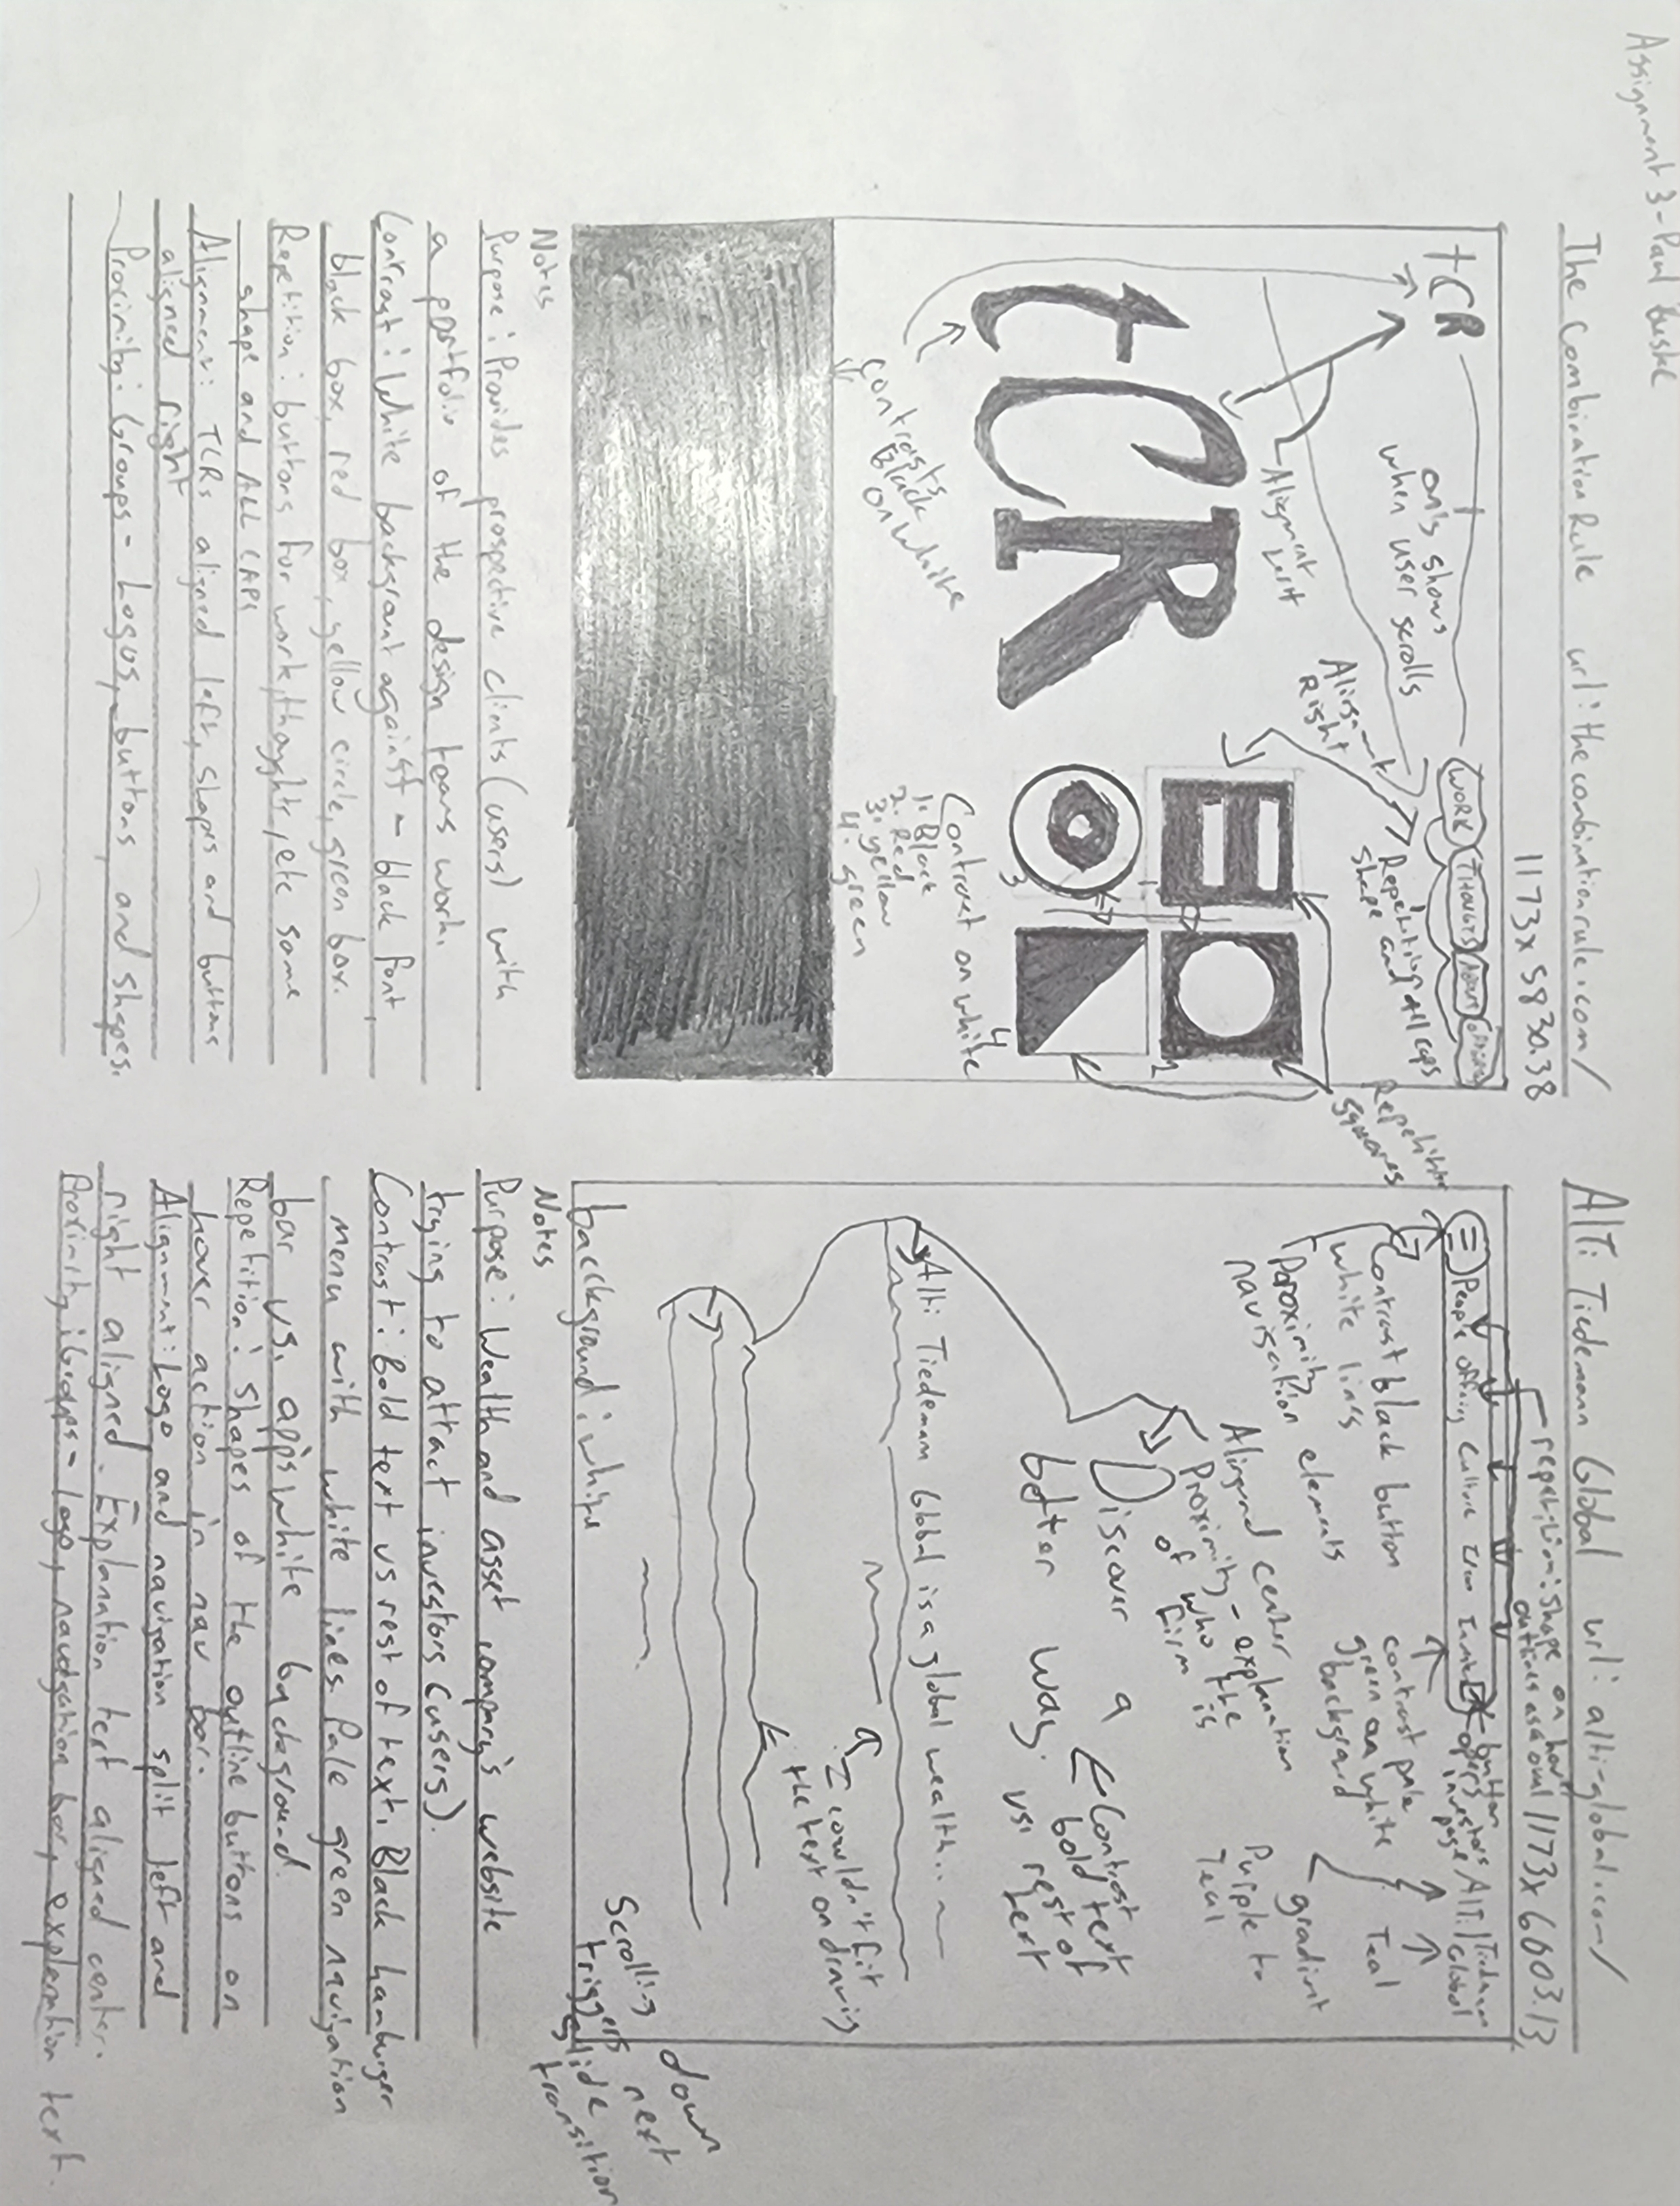 Assignment 3 - Paul
The Combination Rule url: thecombinationrule.com/
1173x 5830.38
tCR
WORK THOUGHTS ABOUT
only shows
when user scrolls
Repetition All caps
shape and
Repetition
squares
Alignment
Right
Aligment
Left
tCR
1
2
3
4
Contrasts
Black
on white
Contrast on white
1. Black
2. Red
3. yellow
4. green
Notes
Purpose: Provides prospective clients (users) with
a portfolio of the design teams work.
Contrast: White backgraunt against - black font,
black box, red box, yellow circle, green box.
Repetition: buttons for work, thoughts, etc same
shape and ALL CAPS
Alignment: TCRs aligned left, shapes and buttons
aligned right
Proximity: Groups - Logos, buttons, and shapes.
AlTi Tiedemann Global url: alti-global.com/
repetition: shape on hover
outlines as a oval
1173x 6003.13
People Offering Culture
button
opens
investors
page
AlTi | Tiedemann
Global
Contrast black button
white lines
Poroximity
navigation elements
contrast pale
green on white
background
Teal
gradient
Purple to
Teal
center
Proximity - explanation
of who the
firm is
Discover a
better way.
Contrast
bold text
vs. rest of
text
Alti Tiedemann Global is a global wealth..
I couldn't fit
the text on drawing
Scrolling down
triggers next
slide
transition
bacckground: white
Notes
Purpose: Wealth and asset company's website
trying to attract investors (users).
Contrast: Bold text vs rest of text. Black hamburger
menu with white lines. Pale green navigation
bar vs. app's white background.
Repetition: Shapes of the outline buttons on
hover action in nav bar.
Alignment: Logo and navigation split left and
right aligned. Explanation text aligned center.
Proximity: Groups - logo, navigation bar, explanation text.